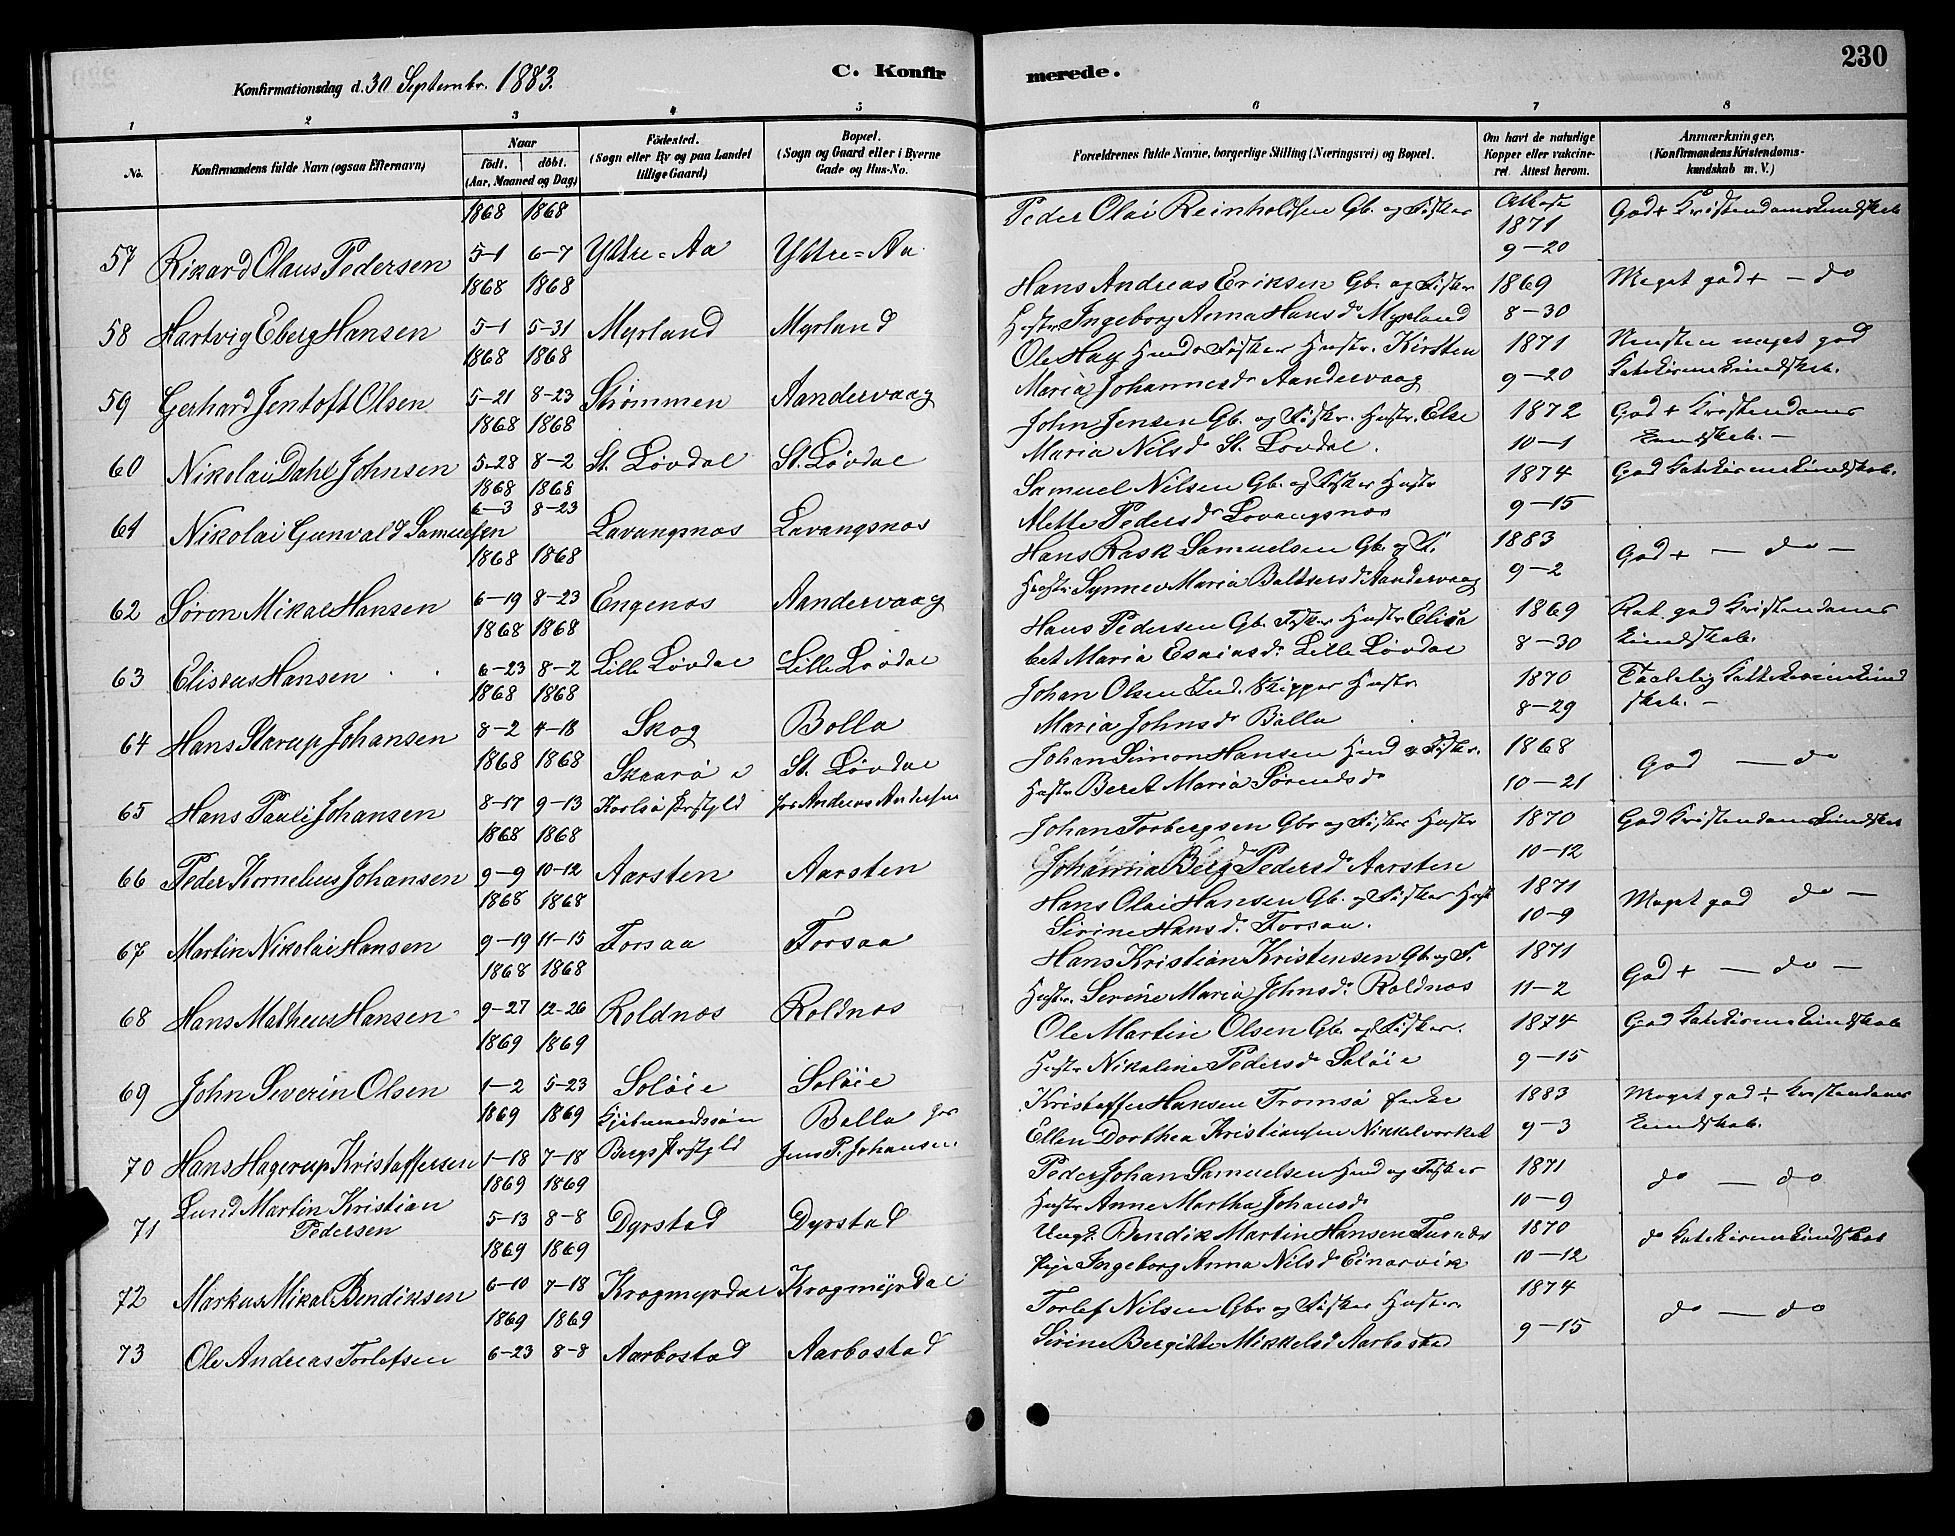 Konfirmationsdag d. 30 Septembr. 1883.
C. Konfirmerede.
230
1 2 3 4 5 6 7 8
No. Konfirmandens fulde Navn (ogsaa Efternavn)
Naar
födt. döbt.
(Aar, Maaned og Dag)
Födested.
(Sogn eller By og paa Landet
tillige Gaard)
Bopæl.
(Sogn og Gaard eller i Byerne
Gade og Hus-No.
Forældrenes fulde Navne, borgerlige Stilling (Næringsvei) og Bopæl.
Om havt de naturlige
Kopper eller vakcine-
ret. Attest herom.
Anmærkninger,
(Konfirmandens Kristendoms-
kundskab m. V.)
1868 1868
57 Rikard Olaus Pedersen 5-1 6-7 Yttre=Aa Yttre=Aa
1868 1868
58 Hartvig Eberg Hansen 5-1 5-31 Myrland Myrland
1868 1868
59 Gerhard Jentoft Olsen 5-21 8-23 Strømmen Aandervaag
1868 1868
60 Nikolai Dahl Johnsen 5-28 8-2 St. Løvdal St. Løvdal
1868 1868
6-3 8-23
61 Nikolai Gunvald Samuelsen Lavangsnes Lavangsnes
1868 1868
62 Søren Mikal Hansen 6-19 8-23 Engenes Aandervaag
1868 1868
63 Eliseus Hansen 6-23 8-2 Lille Løvdal Lille Løvdal
1868 1868
64 Hans Starup Johansen 8-2 4-18 Skog Bolla
1868 1868 Skaarø i St. Løvdal
65 Hans Pauli Johansen 8-17 9-13 Karlsø Prstgld hos Andreas Andersen
1868 1868
66 Peder Kornelius Johansen 9-9 10-12 Aarsten Aarsten
1868 1868
67 Martin Nikolai Hansen 9-19 11-15 Forsaa Forsaa
1868 1868
68 Hans Matheus Hansen 9-27 12-26 Roldnes Roldnes
1869 1869
69 John Severin Olsen 1-2 5-23 Soløie Soløie
1869 1869 Bolla hos
70 Hans Hagerup Kristoffersen 1-18 7-18 Bergs Prstgld Jens P. Johansen
1869 1869
Lund Martin Kristian
71 Pedersen 5-13 8-8 Dyrstad Dyrstad
1869 1869
72 Markus Mikal Bendiksen 6-10 7-18 Krogmyrdal Krogmyrdal
1869 1869
73 Ole Andreas Torlefsen 6-23 8-8 Aarbostad Aarbostad
Peder Olai Reinholdsen Gb. og Fisker Attest 1871 9-20 God + Kristendomskundskab
Hans Andreas Eriksen Gb. og Fisker 1869 Meget god + — do
Hustr. Ingeborg Anna Hansd. Myrland 8-30
Ole Hag Husm. Fisker Hustr. Kirsten 1871 Næsten meget god
Maria Johannesd. Aandervaag 9-20
John Jensen Gb. og Fiskr. Hustr. Else 1872 God + Kristendoms
Maria Nilsd. St. Løvdal. 10-1 kundskab. —
Samuel Nilsen Gb. og Fisker Hustr 1874
Alette Pedersd. Lavangsnes 9-15
Hans Rask Samuelsen Gb. og F. 1883 God + — do —
Hustr. Synnev Maria Baltsersd. Aandervaag 9-2
Hans Pedersen Gb. Fisker Hustr. Elisa 1869 god Kristendoms
bet Maria Esaiasd. Lille Løvdal 8-30 kundskab.
Johan Olsen Ind. Skipper Hustr. 1870
Maria Johnsd. Bolla 8-29 skab. —
Johan Simon Hansen Husm. og Fisker. 1868 God — do
Hustr Beret Maria Sørensd. 10-21
Johan Torbergsen Gbr og Fisker Hustr 1870 God Kristendomskundskab
Johanna Berg Pedersd. Aarsten 10-12
Hans Olai Hansen Gb. og Fisker Hustr 1871 Meget god do —
Serine Hansd. Forsaa. 10-9
Hans Kristian Kristensen Gb. og F. 1871 God + — do —
Hustr. Serine Maria Johnsd. Roldnes 11-2
Ole Martin Olsen Gb. og Fisker. 1874
Hustr Nikoline Pedersd. Soløie 9-15
Kristoffer Hansen Tromsø Enke 1883 Meget god ÷ Kristendoms
Ellen Dorthea Kristiansen Nikkelverket 9-3 kundskab.
Peder Johan Samuelsen Husm og Fisker 1871 do — do
Hustr Anne Martha Johansd. 10-9
Ungk. Bendik Martin Hansen 1870
Pige Ingeborg Anna Nilsd. Einarvik 10-12
Torlef Nilsen Gbr og Fisker Hustr. 1874 do — do
Serine Bergitte Mikkelsd. Aarbostad 9-15